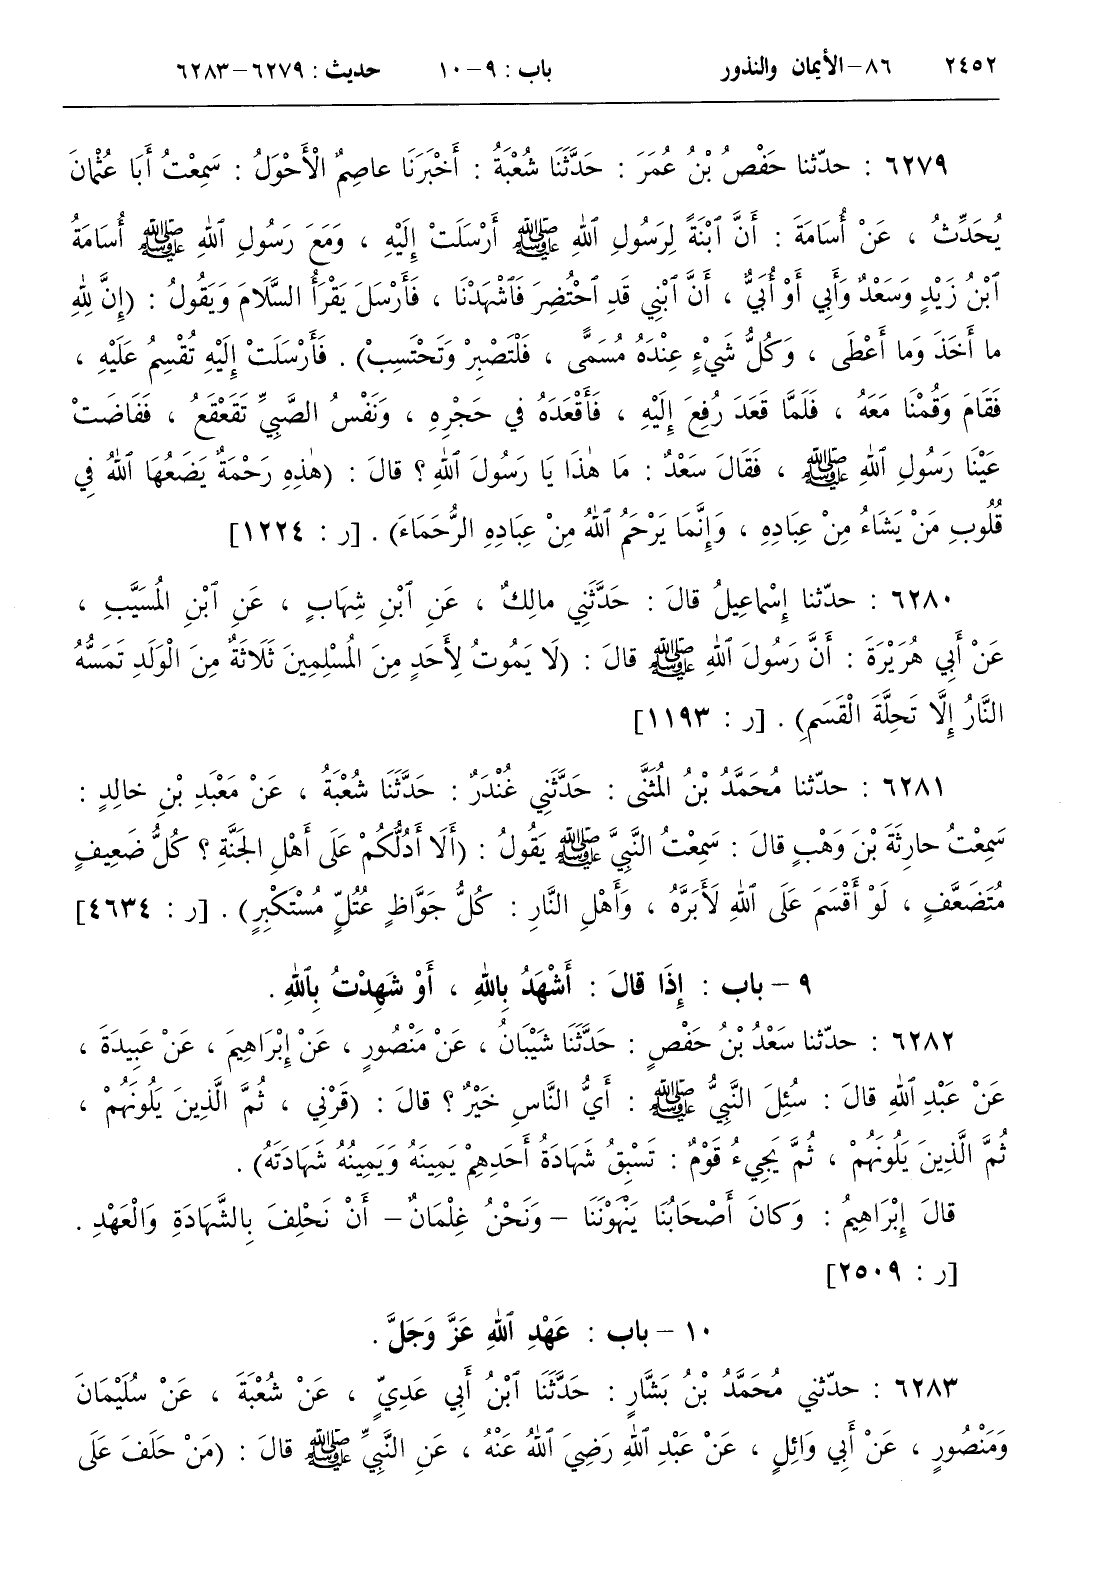 ٢٤٥٢ ٨٦–الأيمان والنذور باب : ٩–١٠ حديث : ٦٢٧٩–٦٢٨٣
٦٢٧٩ : حدّثنا حَفْصُ بْنُ عُمَرَ : حَدَّثَنَا شُعْبَةُ : أَخْبَرَنَا عاصِمٌ الْأَحْوَلُ : سَمِعْتُ أَبَا عُثْمانَ
يُحَدِّثُ ، عَنْ أُسَامَةَ : أَنَّ ٱبْنَةً لِرَسُولِ ٱللهِ ﷺ أَرْسَلَتْ إِلَيْهِ ، وَمَعَ رَسُولِ ٱللهِ ﷺ أُسَامَةُ
ٱبْنُ زَيْدٍ وَسَعْدٌ وَأَبِي أَوْ أُبَيٌّ ، أَنَّ ٱبْنِي قَدِ ٱحْتُضِرَ فَٱشْهَدْنَا ، فَأَرْسَلَ يَقْرَأُ السَّلَامَ وَيَقُولُ : (إِنَّ لِلهِ
ما أَخَذَ وَما أَعْطَى ، وَكُلُّ شَيْءٍ عِنْدَهُ مُسَمًّى ، فَلْتَصْبِرْ وَتَحْتَسِبْ) . فَأَرْسَلَتْ إِلَيْهِ تُقْسِمُ عَلَيْهِ ،
فَقَامَ وَقُمْنَا مَعَهُ ، فَلَمَّا قَعَدَ رُفِعَ إِلَيْهِ ، فَأَقْعَدَهُ في حَجْرِهِ ، وَنَفْسُ الصَّبِيِّ تَقَعْقَعُ ، فَفَاضَتْ
عَيْنَا رَسُولِ ٱللهِ ﷺ ، فَقَالَ سَعْدٌ : مَا هٰذَا يَا رَسُولَ ٱللهِ ؟ قالَ : (هٰذِهِ رَحْمَةٌ يَضَعُهَا ٱللهُ في
قُلُوبِ مَنْ يَشَاءُ مِنْ عِبَادِهِ ، وَإِنَّمَا يَرْحَمُ ٱللهُ مِنْ عِبَادِهِ الرُّحَمَاءَ) . [ر : ١٢٢٤]
٦٢٨٠ : حدّثنا إِسْماعِيلُ قالَ : حَدَّثَنِي مالِكٌ ، عَنِ ٱبْنِ شِهَابٍ ، عَنِ ٱبْنِ المُسَيَّبِ ،
عَنْ أَبِي هُرَيْرَةَ : أَنَّ رَسُولَ ٱللهِ ﷺ قالَ : (لَا يَمُوتُ لِأَحَدٍ مِنَ المُسْلِمِينَ ثَلَاثَةٌ مِنَ الْوَلَدِ تَمَسُّهُ
النَّارُ إِلَّا تَحِلَّةَ الْقَسَمِ) . [ر : ١١٩٣]
٦٢٨١ : حدّثنا مُحَمَّدُ بْنُ المُثَنَّى : حَدَّثَنِي غُنْدَرٌ : حَدَّثَنَا شُعْبَةُ ، عَنْ مَعْبَدِ بْنِ خالِدٍ :
سَمِعْتُ حارِثَةَ بْنَ وَهْبٍ قالَ : سَمِعْتُ النَّبِيَّ ﷺ يَقُولُ : (أَلَا أَدُلُّكُمْ عَلَى أَهْلِ الجَنَّةِ ؟ كُلُّ ضَعِيفٍ
مُتَضَعَّفٍ ، لَوْ أَقْسَمَ عَلَى ٱللهِ لَأَبَرَّهُ ، وَأَهْلِ النَّارِ : كُلُّ جَوَّاظٍ عُتُلٍّ مُسْتَكْبِرٍ) . [ر : ٤٦٣٤]
٩ – باب : إِذَا قالَ : أَشْهَدُ بِٱللهِ ، أَوْ شَهِدْتُ بِٱللهِ .
٦٢٨٢ : حدّثنا سَعْدُ بْنُ حَفْصٍ : حَدَّثَنَا شَيْبَانُ ، عَنْ مَنْصُورٍ ، عَنْ إِبْرَاهِيمَ ، عَنْ عَبِيدَةَ ،
عَنْ عَبْدِ ٱللهِ قالَ : سُئِلَ النَّبِيُّ ﷺ : أَيُّ النَّاسِ خَيْرٌ ؟ قالَ : (قَرْنِي ، ثُمَّ الَّذِينَ يَلُونَهُمْ ،
ثُمَّ الَّذِينَ يَلُونَهُمْ ، ثُمَّ يَجِيءُ قَوْمٌ : تَسْبِقُ شَهَادَةُ أَحَدِهِمْ يَمِينَهُ وَيَمِينُهُ شَهَادَتَهُ) .
قالَ إِبْرَاهِيمُ : وَكانَ أَصْحَابُنَا يَنْهَوْنَنَا – وَنَحْنُ غِلْمَانٌ – أَنْ نَحْلِفَ بِالشَّهَادَةِ وَالْعَهْدِ .
[ر : ٢٥٠٩]
١٠ – باب : عَهْدِ ٱللهِ عَزَّ وَجَلَّ .
٦٢٨٣ : حدّثني مُحَمَّدُ بْنُ بَشَّارٍ : حَدَّثَنَا ٱبْنُ أَبِي عَدِيٍّ ، عَنْ شُعْبَةَ ، عَنْ سُلَيْمَانَ
وَمَنْصُورٍ ، عَنْ أَبِي وَائِلٍ ، عَنْ عَبْدِ ٱللهِ رَضِيَ ٱللهُ عَنْهُ ، عَنِ النَّبِيِّ ﷺ قالَ : (مَنْ حَلَفَ عَلَى